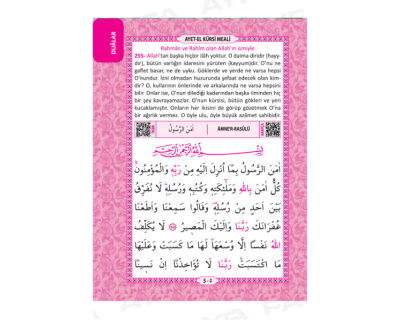 DUÂLAR
AYET-EL KÜRSİ MEALİ
Rahmân ve Rahîm olan Allah'ın ismiyle
255- Allah'tan başka hiçbir ilâh yoktur. O daima diridir (hayy-
dır), bütün varlığın idaresini yürüten (kayyum)dır. O'nu ne
gaflet basar, ne de uyku. Göklerde ve yerde ne varsa hepsi
O'nundur. İzni olmadan huzurunda şefaat edecek olan kim-
dir? O, kullarının önlerinde ve arkalarında ne varsa hepsini
bilir. Onlar ise, O'nun dilediği kadarından başka ilminden hiç
bir şey kavrayamazlar. O'nun kürsisi, bütün gökleri ve yeri
kucaklamıştır. Onların her ikisini de görüp gözetmek O'na
bir ağırlık vermez. O öyle ulu, öyle büyük azâmet sahibidir.
اٰمَنَ الرَّسُولُ ÂMNE'R-RASÛLÜ
بِسْمِ اللّٰهِ الرَّحْمٰنِ الرَّحِيمِ
اٰمَنَ الرَّسُولُ بِمَٓا اُنْزِلَ اِلَيْهِ مِنْ رَبِّهٖ وَالْمُؤْمِنُونَۜ
كُلٌّ اٰمَنَ بِاللّٰهِ وَمَلٰٓئِكَتِهٖ وَكُتُبِهٖ وَرُسُلِهٖۜ لَا نُفَرِّقُ
بَيْنَ اَحَدٍ مِنْ رُسُلِهٖ۠ وَقَالُوا سَمِعْنَا وَاَطَعْنَا
غُفْرَانَكَ رَبَّنَا وَاِلَيْكَ الْمَصِيرُ ﴿٢٨٥﴾ لَا يُكَلِّفُ
اللّٰهُ نَفْسًا اِلَّا وُسْعَهَاۜ لَهَا مَا كَسَبَتْ وَعَلَيْهَا
مَا اكْتَسَبَتْۜ رَبَّنَا لَا تُؤَاخِذْنَٓا اِنْ نَسِينَٓا
5-٥